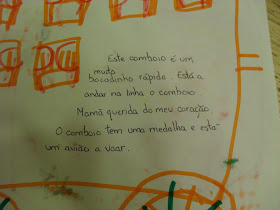 Este comboio é um
muito
bocadinho rápido. Está a
andar na linha o comboio.
Mamã querida do meu coração.
O comboio tem uma medalha e está
um avião a voar.